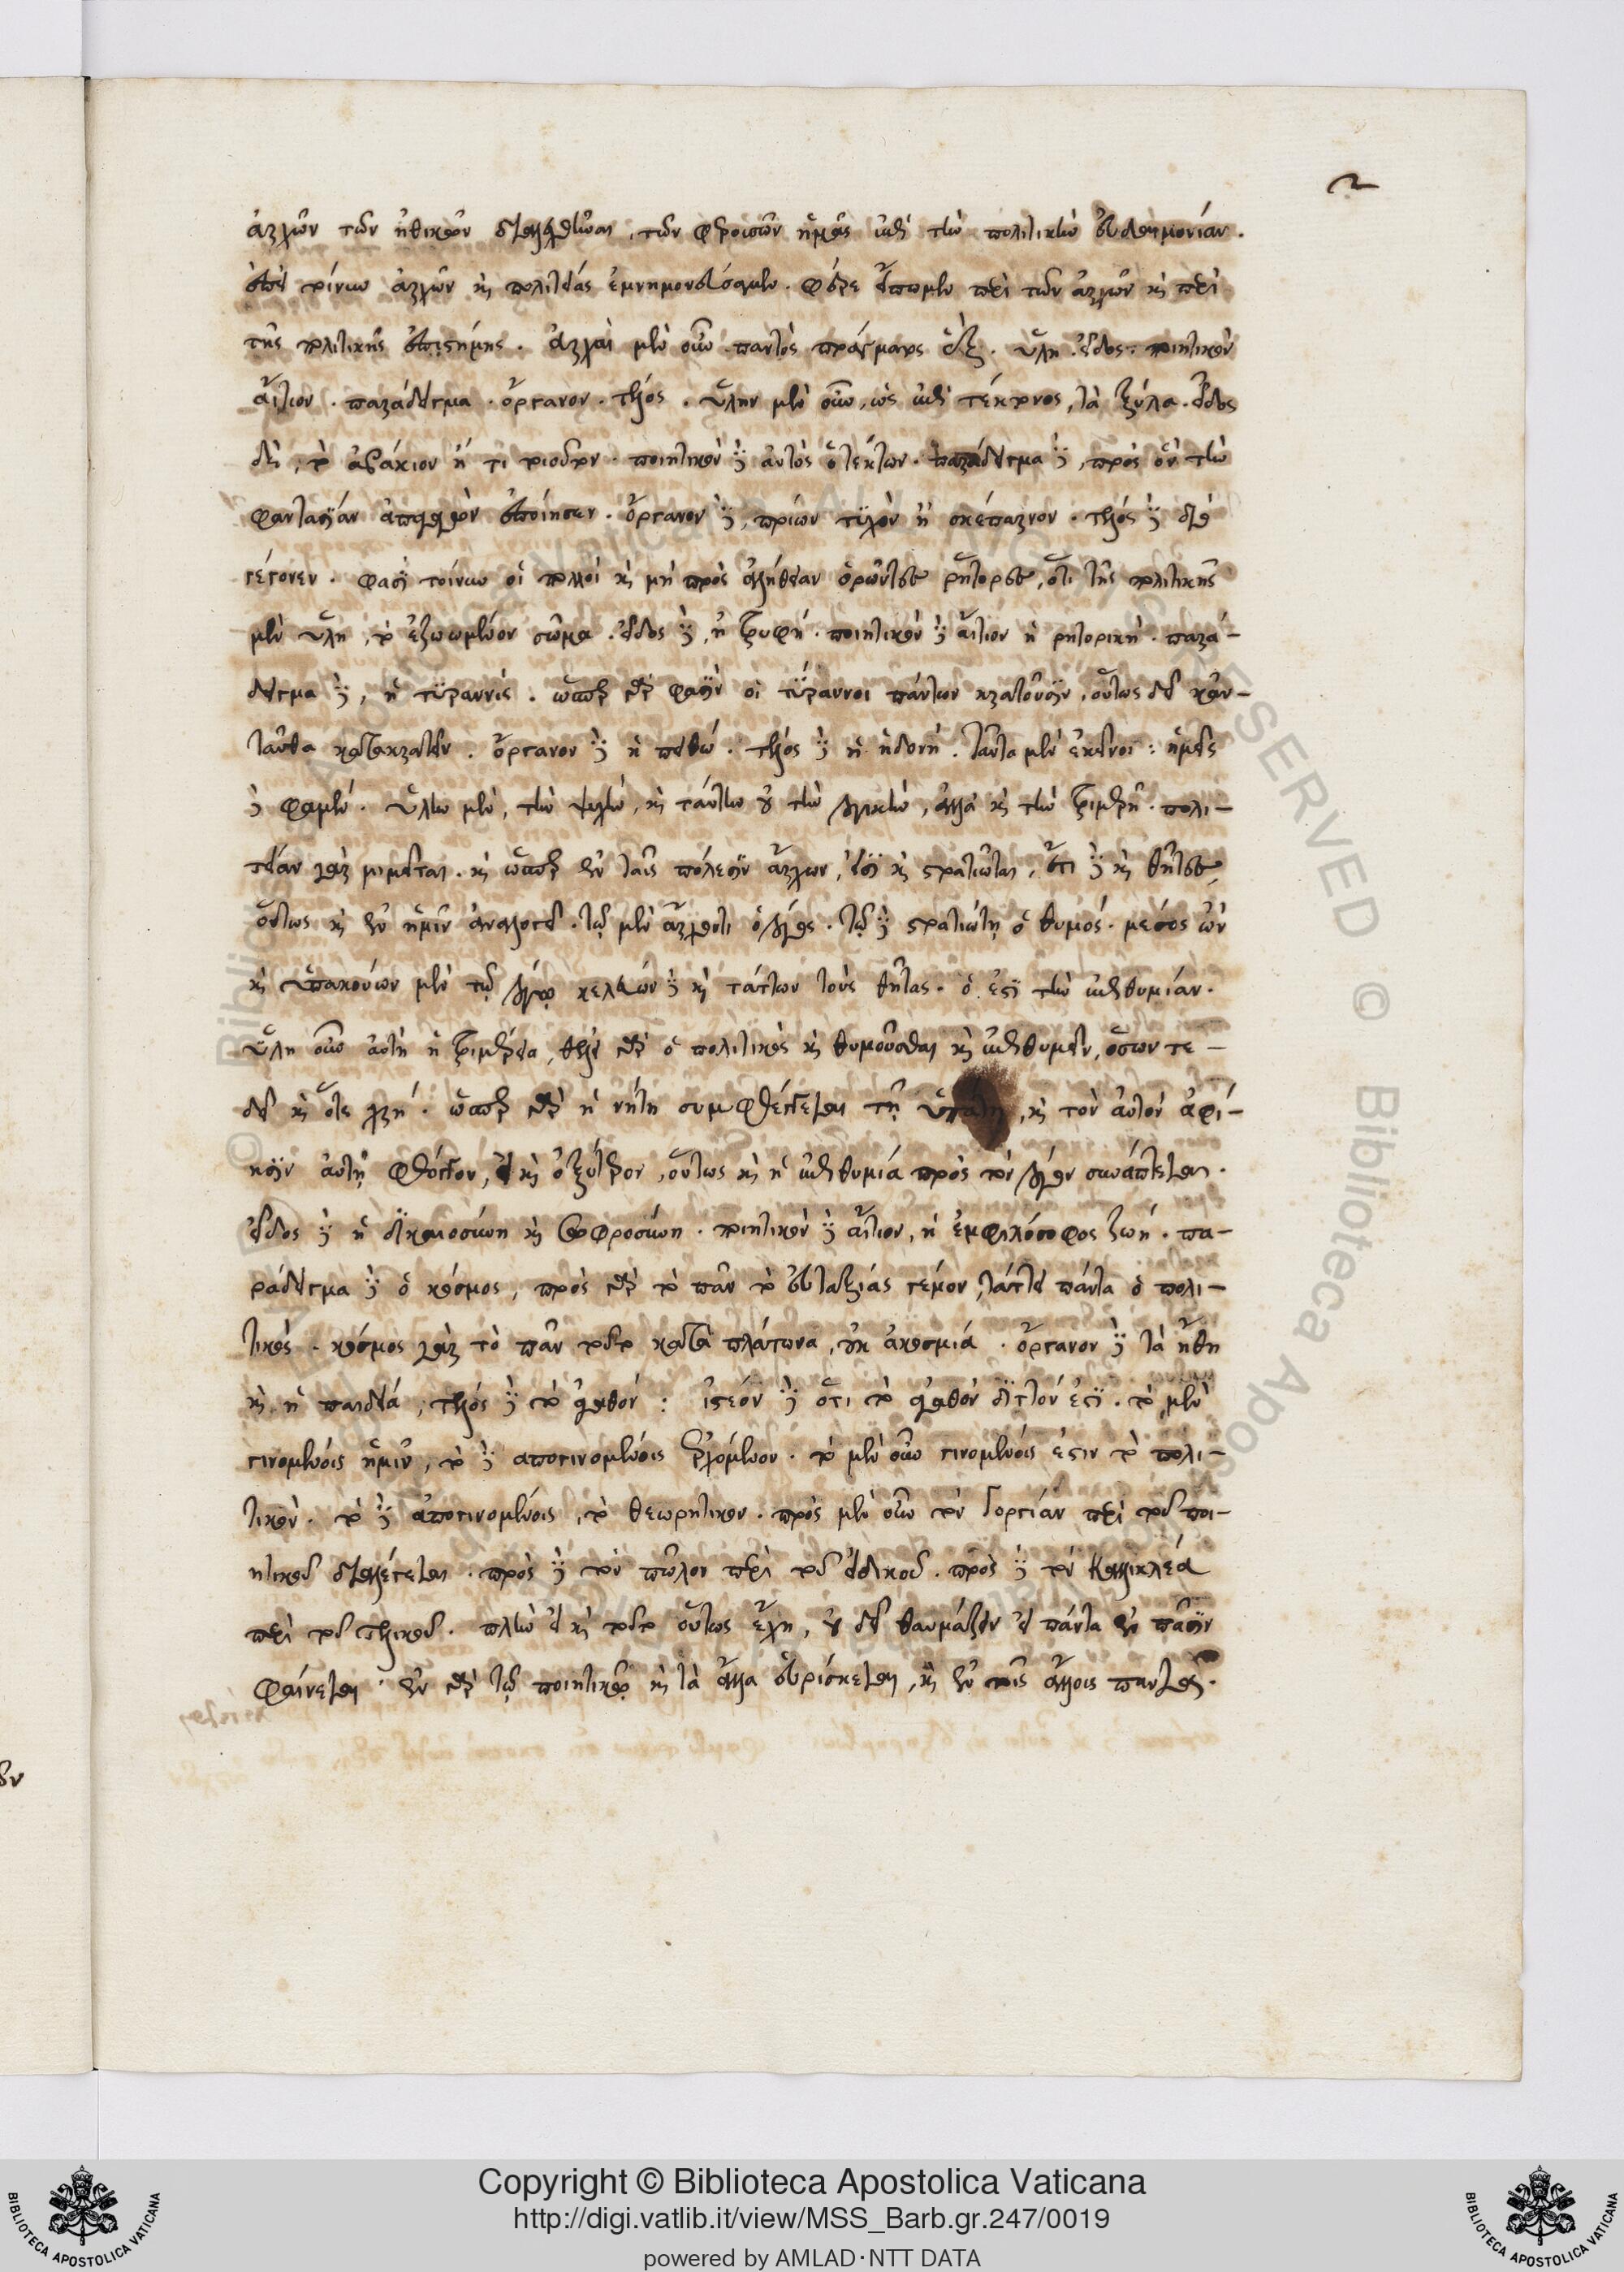 2
ἀρχῶν τῶν ἠθικῶν διαλεχθῆναι, τῶν φερουσῶν ἡμᾶς ἐπὶ τὴν πολιτικὴν εὐδαιμονίαν.
ἐπεὶ τοίνυν ἀρχῶν κὶ πολιτείας ἐμνημονεύσαμεν. φέρε εἴπωμεν περὶ τῶν ἀρχῶν κὶ περὶ
τῆς πολιτικῆς ἐπιστήμης. ἀρχαὶ μὲν οὖν παντὸς πράγματος ἕξ. ὕλη. εἶδος. ποιητικὸν
αἴτιον. παράδειγμα. ὄργανον. τέλος. ὕλην μὲν οὖν, ὡς ἐπὶ τέκτονος, τὰ ξύλα. εἶδος
δὲ, τὸ ἀβάκιον ἤ τι τοιοῦτον. ποιητικὸν δὲ αὐτὸς ὁ τέκτων. παράδειγμα δὲ, πρὸς ὃν τὴν
φαντασίαν ἐποίησεν. ὄργανον δὲ, πρίων τυχὸν ἢ σκέπαρνον. τέλος δὲ διὸ
γέγονεν. φασὶ τοίνυν οἱ πολλοὶ κὶ μὴ πρὸς ἀλήθειαν ὁρῶντες ῥήτορες, ὅτι τῆς πολιτικῆς
μὲν ὕλη, τὸ ἐζωωμένον σῶμα. εἶδος δὲ, ἡ τρυφή. ποιητικὸν δὲ αἴτιον ἡ ρητορική. παρά-
δειγμα δὲ, ἡ τυραννίς. ὥσπερ γὰρ φασὶν οἱ τύραννοι πάντων κρατοῦσιν, οὕτως δεῖ κἀν-
ταῦθα κατακρατεῖν. ὄργανον δὲ ἡ πειθώ. τέλος δὲ ἡ ἡδονή. ταῦτα μὲν ἐκεῖνοι: ἡμεῖς
δὲ φαμέν. ὕλην μὲν, τὴν ψυχήν, κὶ ταύτην οὐ τὴν λογικήν, ἀλλὰ κὶ τὴν τριμερῆ. πολι-
τείαν γὰρ μιμεῖται. κὶ ὥσπερ ἐν ταῖς πόλεσιν ἄρχων, εἰσὶ κὶ στρατιῶται, ἔτι δὲ κὶ θῆτες,
οὕτως κὶ ἐν ἡμῖν ἀναλογεῖ. τῷ μὲν ἄρχοντι ὁ λόγος. τῷ δὲ στρατιώτῃ ὁ θυμός. μέσος ὢν
κὶ ὑπακούων μὲν τῷ λόγῳ κελεύων δὲ κὶ τάττων τοὺς θῆτας. ὅ ἐστι τὴν ἐπιθυμίαν.
ὕλη οὖν αὐτὴ ἡ τριμέρεια, θέλει γὰρ ὁ πολιτικὸς κὶ θυμοῦσθαι κὶ ἐπιθυμεῖν, ὅσων τε
δεῖ κὶ ὅτε χρή. ὥσπερ γὰρ ἡ νήτη συμφθέγγεται τῇ ὑπάτῃ, κὶ τὸν αὐτὸν ἀφί-
ησιν αὐτῇ φθόγγον, εἰ κὶ ὀξύτερον, οὕτως κὶ ἡ ἐπιθυμία πρὸς τὸν λόγον συνάπτεται.
εἶδος δὲ ἡ δικαιοσύνη κὶ σωφροσύνη. ποιητικὸν δὲ αἴτιον, ἡ ἐμφιλόσοφος ζωή. πα-
ράδειγμα δὲ ὁ κόσμος, πρὸς γὰρ τὸ πᾶν τὸ εὐταξίας γέμον, τάττει πάντα ὁ πολι-
τικὸς. κόσμος γὰρ τὸ πᾶν τοῦτο κατὰ πλάτωνα, οὐκ ἀκοσμία. ὄργανον δὲ τὰ ἤθη
κὶ ἡ παιδεία, τέλος δὲ τὸ ἀγαθόν: ἰστέον δὲ ὅτι τὸ ἀγαθὸν διττόν ἐστι. τὸ μὲν
γινομένοις ἡμῖν, τὸ δὲ ἀπογινομένοις ἐρχόμενον. τὸ μὲν οὖν γινομένοις ἐστιν τὸ πολι-
τικόν. τὸ δὲ ἀπογινομένοις, τὸ θεωρητικον. πρὸς μὲν οὖν τὸν Γοργίαν περὶ τοῦ ποι-
ητικοῦ διαλέγεται. πρὸς δὲ τὸν πῶλον περὶ τοῦ εἰδικοῦ. πρὸς δὲ τὸν Καλλικλέα
περὶ τοῦ τελικοῦ. πλὴν εἰ κὶ τοῦτο οὕτως ἔχη, οὐ δεῖ θαυμάζειν εἰ πάντα ἐν πᾶσιν
φαίνεται. ἐν γὰρ τῷ ποιητικῷ κὶ τὰ ἄλλα εὑρίσκεται, κὶ ἐν τοῖς ἄλλοις
Copyright © Biblioteca Apostolica Vaticana
http://digi.vatlib.it/view/MSS_Barb.gr.247/0019
powered by AMLAD·NTT DATA
BIBLIOTECA APOSTOLICA VATICANA
BIBLIOTECA APOSTOLICA VATICANA